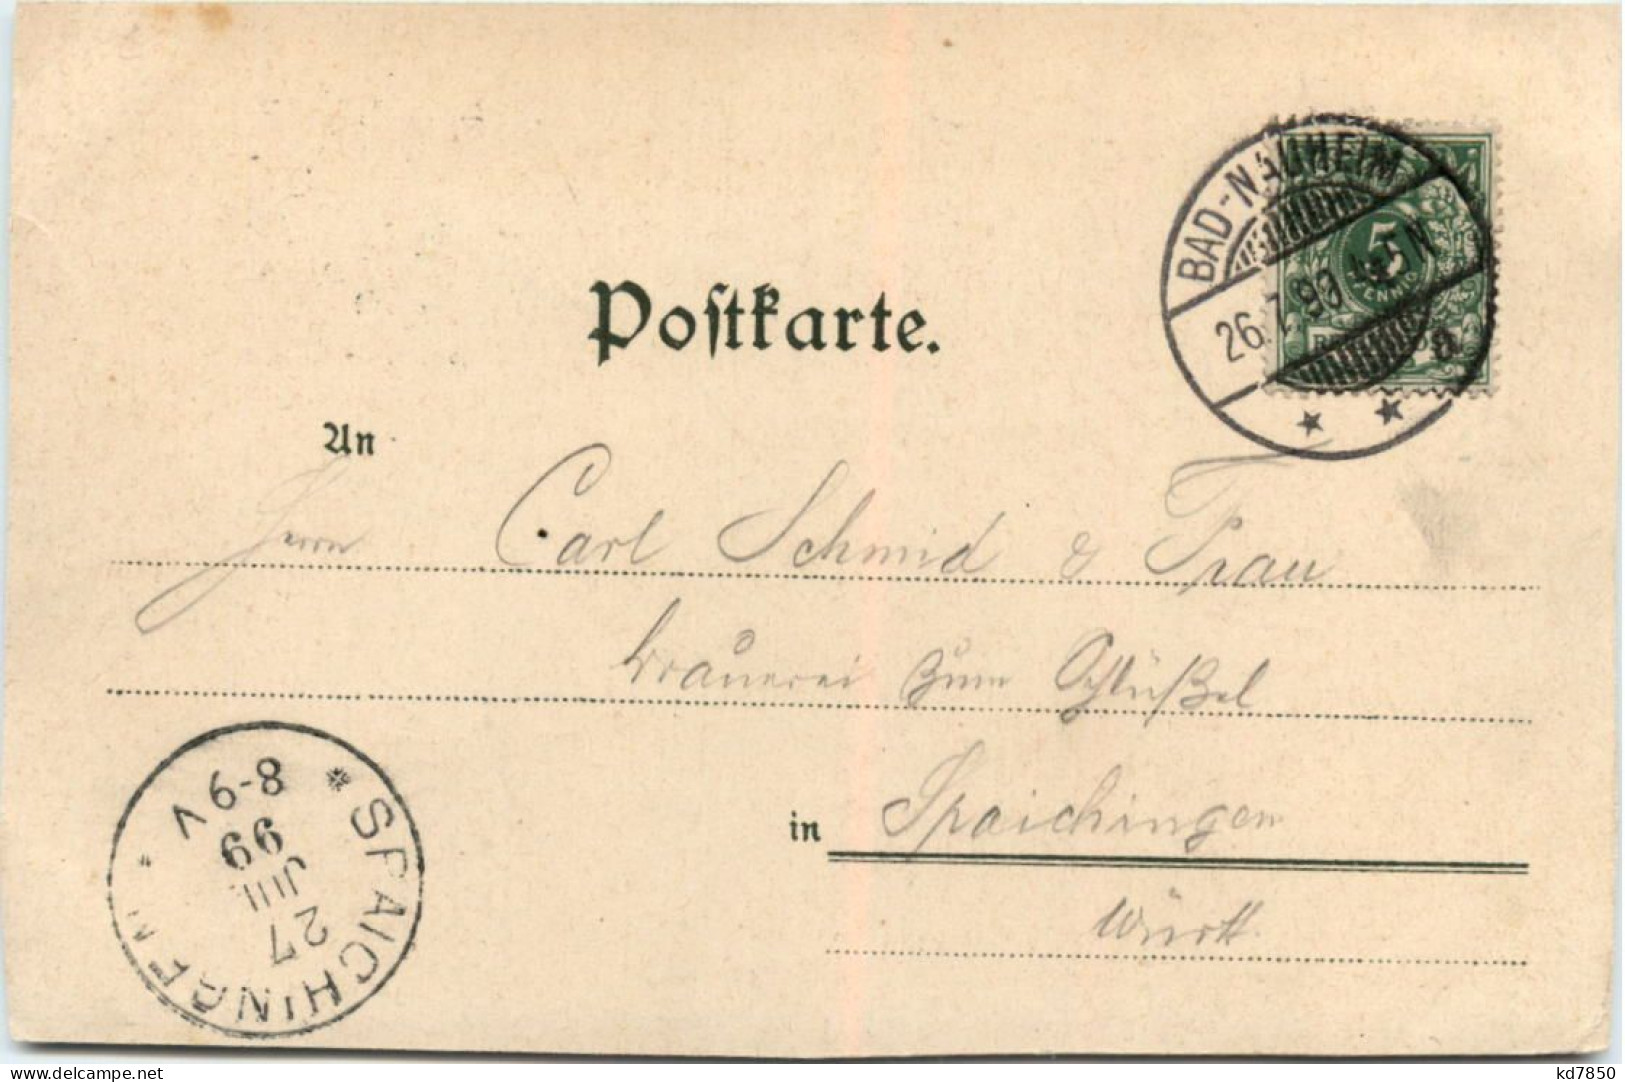 BAD-NAUHEIM
26.7.99 4-5 N
a
5
PFENNIG
Postkarte.
An
Herrn Carl Schmid & Frau
Brauerei zum Schlüßel
in Spaichingen
Württ.
SPAICHINGEN
27 JUL 99
V 6-8
delcampe.net
kd7850